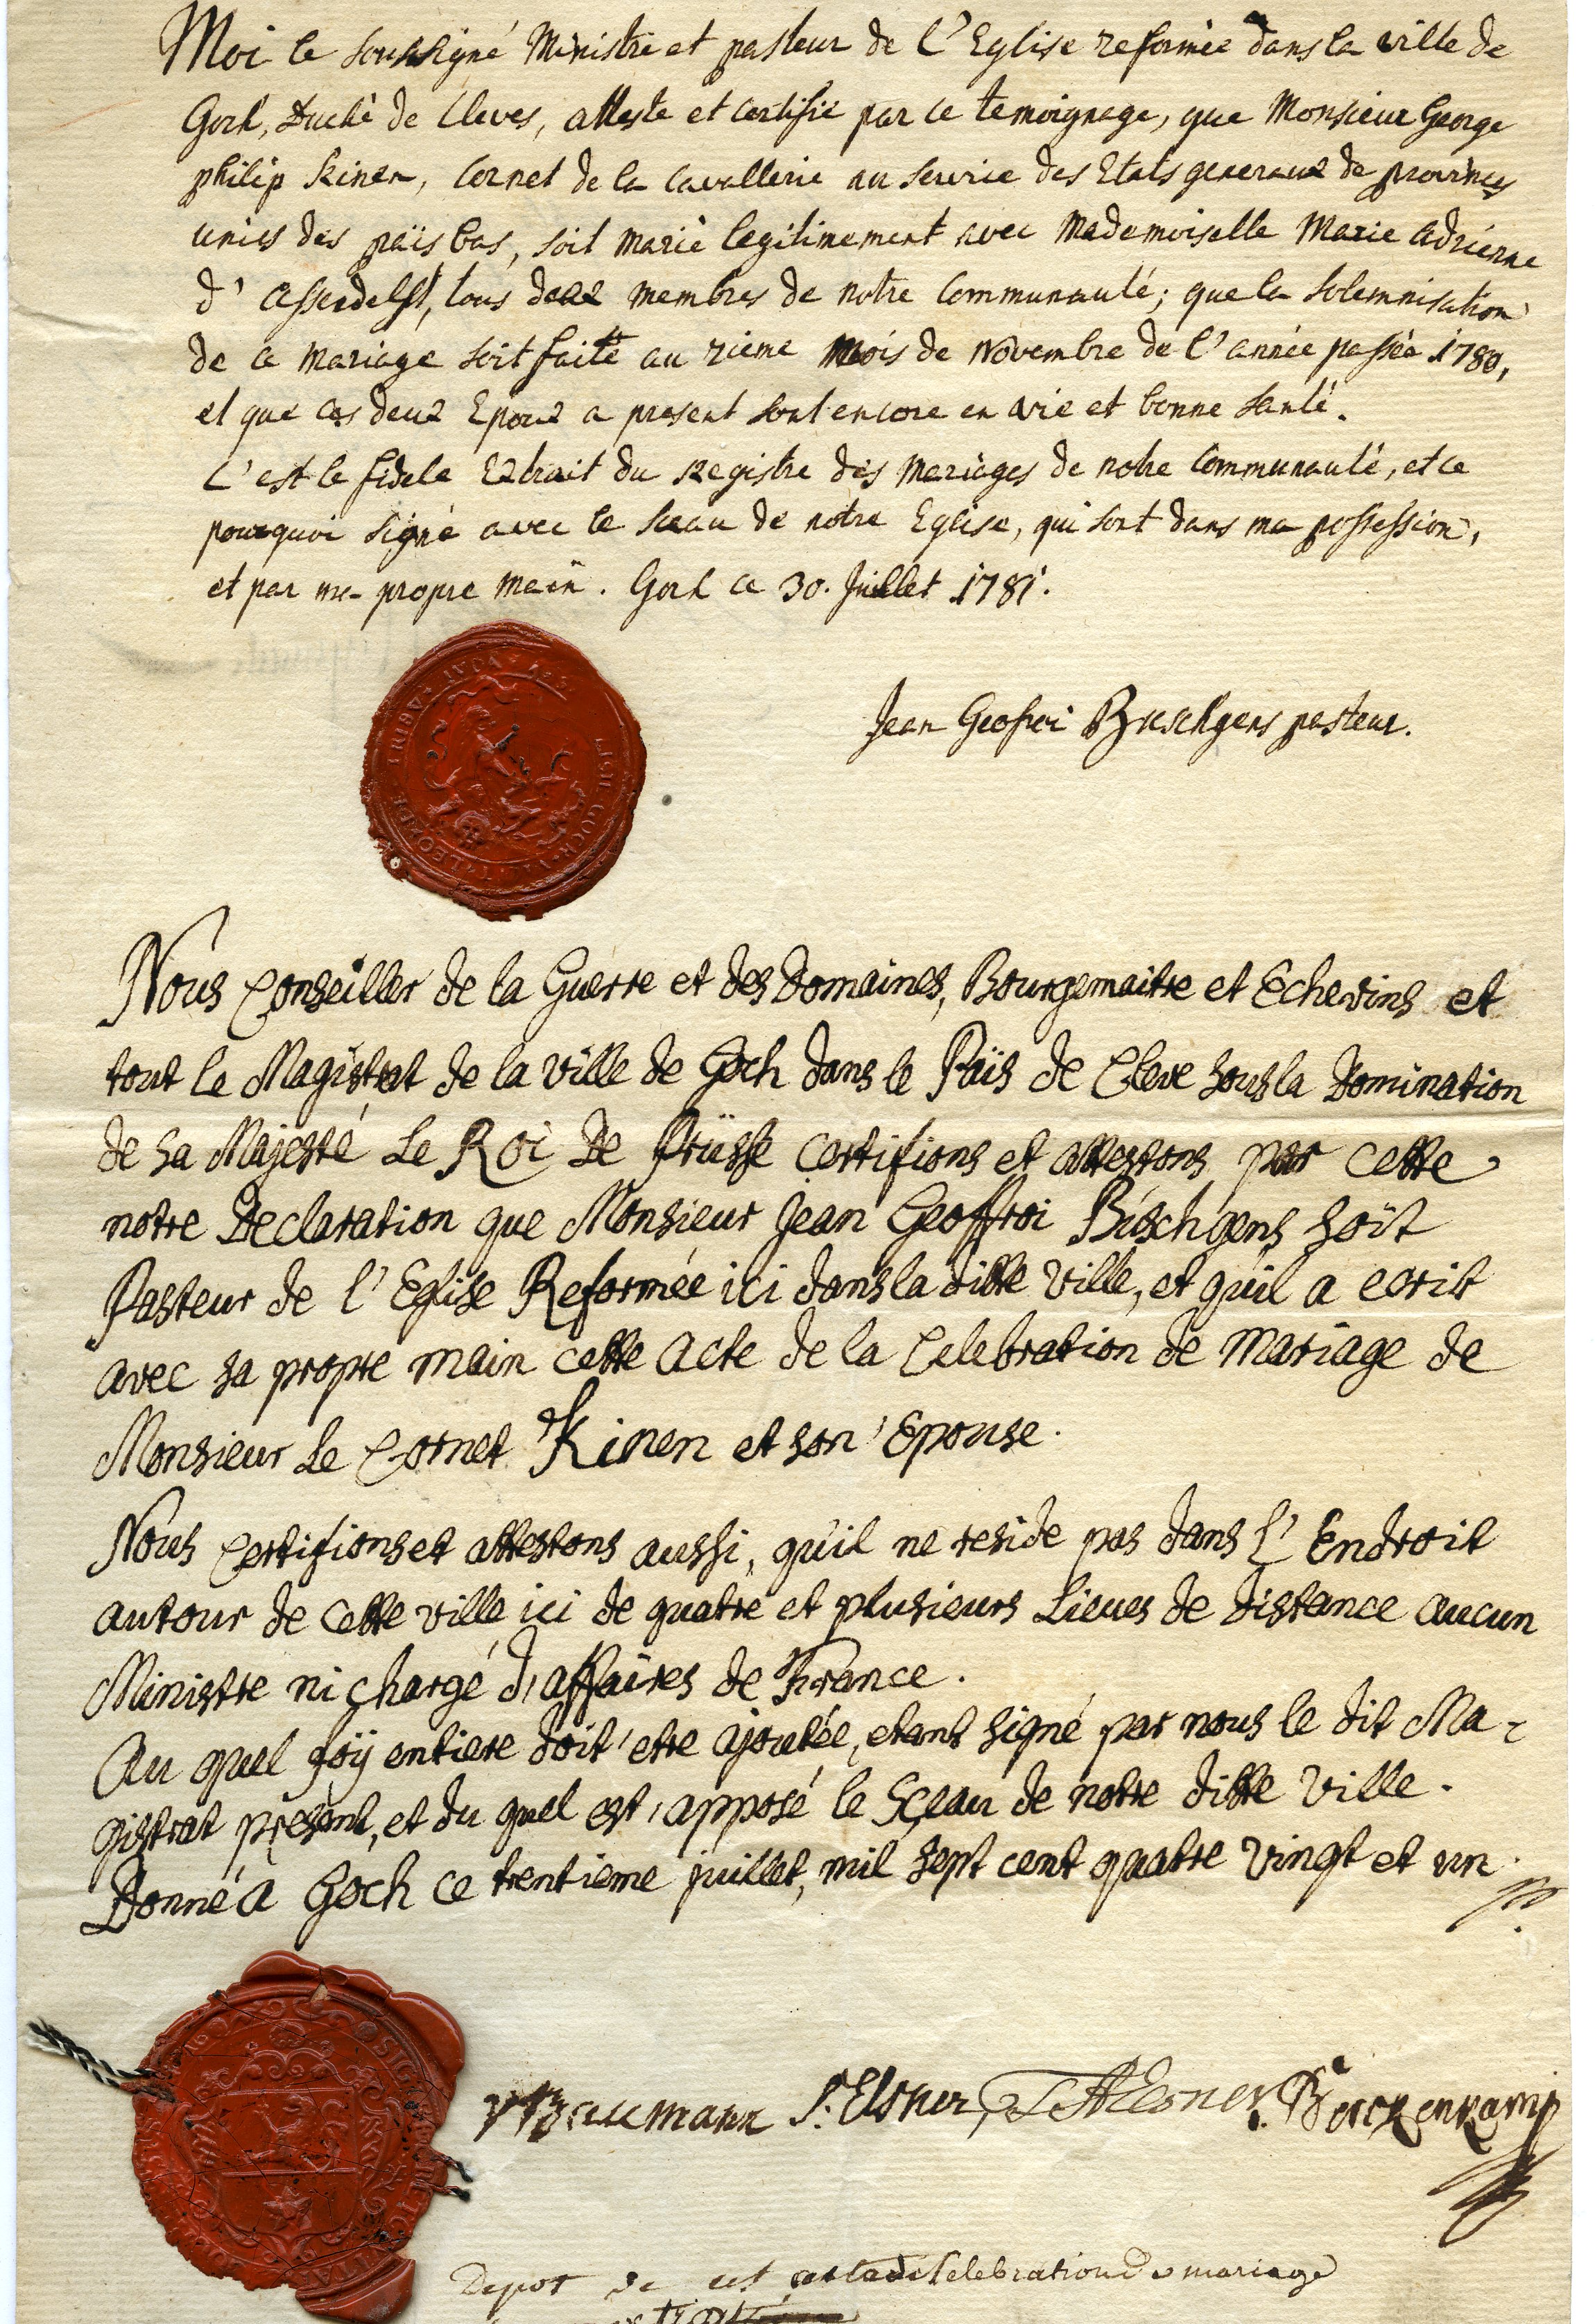 Moi le soussigné Ministre et pasteur de l'Eglise reformée dans la ville de
Goch, Duché de Cleves, atteste et certifie par ce temoignage, que Monsieur George
philip Kinen, Cornet de la Cavallerie au service des Etats generaux de provinces
unies des païs bas, soit marié legitimement avec Mademoiselle Marie Adrienne
d'Assendelft, tous deux membres de notre Communauté; que la Solemnisation
de ce mariage soit faite au mois de Novembre de l'année passée 1780,
et que ces deux Epoux a present sont encore en vie et bonne santé.
C'est le fidele Extrait du Registre des Mariages de notre Communauté, et ce
pourquoi signé avec le sceau de notre Eglise, qui sont dans ma possession,
et par ma propre main. Goch ce 30. Juillet 1781.
LICH GOCH
Jean Geofroi Buschgens pasteur.
Nous Conseiller de la Guerre et des Domaines, Bourgemaitre et Echevins et
tout le Magistrat de la ville de Goch dans le Païs de Cleve sous la Domination
de sa Majesté Le Roi De Prüsse certifions et attestons par cette
notre Declaration que Monsieur Jean Geoffroi Büschgens soit
Pasteur de l'Eglise Reformée ici dans la ditte Ville, et qu'il a ecrit
avec sa propre main cette Acte de la Celebration de Mariage de
Monsieur Le Cornet Kinen et son Epouse.
Nous Certifions et attestons aussi, qu'il ne reside pas dans L'Endroit
autour de Cette ville ici de quatre et plusieurs Lieues de distance aucun
Ministre ni chargé d'affaires de France.
Au quel foÿ entiere doit etre ajoutée, etant signé par nous le dit Ma-
gistrat present, et du quel est apposé le Sçeau de notre ditte Ville.
Donné a Goch ce trentieme juillet, mil sept cent quatre Vingt et un.
Baumann Elsner Esner Berckenkamp
Depot de cet acte de Celebration de mariage